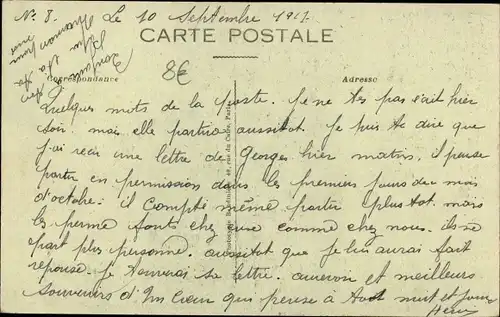 No 8. Le 10 Septembre 1917
CARTE POSTALE
8€
Correspondance
Adresse
Quelques mots de la poste. je ne t'es pas écrit hier
soir, mais elle partira aussitot. je puis te dire que
j'ai reçu une lettre de Georges hier matin, il pense
partir en permission dans les premiers jours du mois
d'octobre. il compte même partir plus tot. mais
les perme sont chez eux comme chez nous. ils ne
part plus personne. aussitot que je lui aurai fait
réponse. je t'enverai sa lettre. et meilleurs
souvenirs d'un cœur qui pense à toi nuit et jour